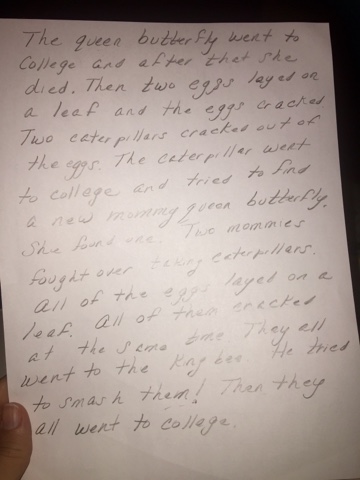 The queen butterfly went to
College and after that she
died. Then two eggs layed on
a leaf and the eggs cracked
Two caterpillars cracked out of
the eggs. The caterpillar went
to college and tried to find
a new mommy queen butterfly.
She found one. Two mommies
fought over taking caterpillars.
All of the eggs layed on a
leaf. All of them cracked
at the same time They all
went to the King bee. He tried
to smash them! Then they
all went to college.